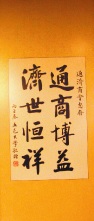 通濟商會惠存
通商博益
濟世恒祥